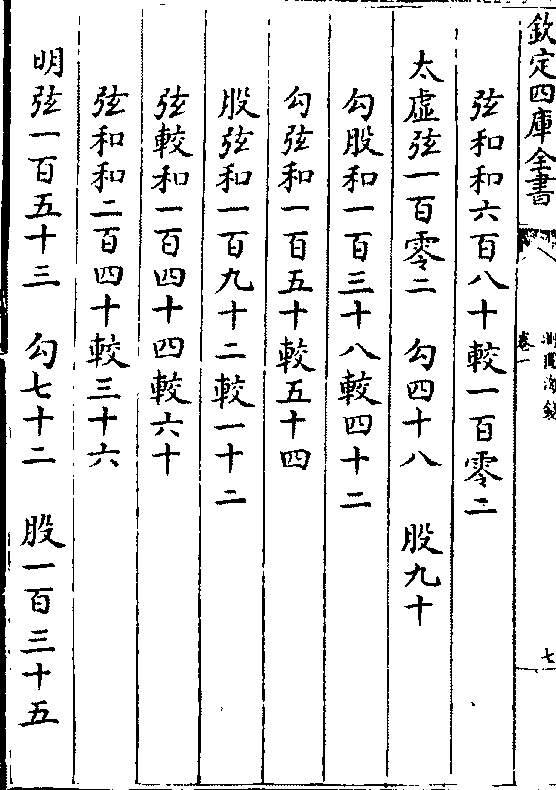 欽定四庫全書
測圓海鏡
卷一
七
弦和和六百八十較一百零二
太虛弦一百零二　勾四十八　股九十
勾股和一百三十八較四十二
勾弦和一百五十較五十四
股弦和一百九十二較一十二
弦較和一百四十四較六十
弦和和二百四十較三十六
明弦一百五十三　勾七十二　股一百三十五